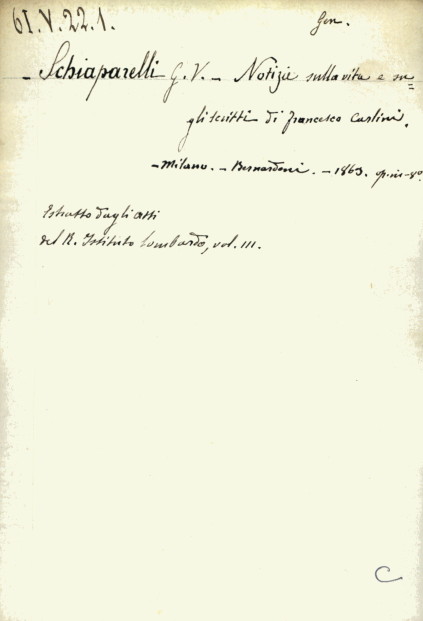 61.V.22.1.
Gen.
- Schiaparelli G. V. - Notizie sulla vita e su=
gli scritti di Francesco Carlini.
- Milano. - Bernardoni. - 1863. op. in-8º
Estratto dagli atti
del R. Istituto Lombardo, vol. III.
C